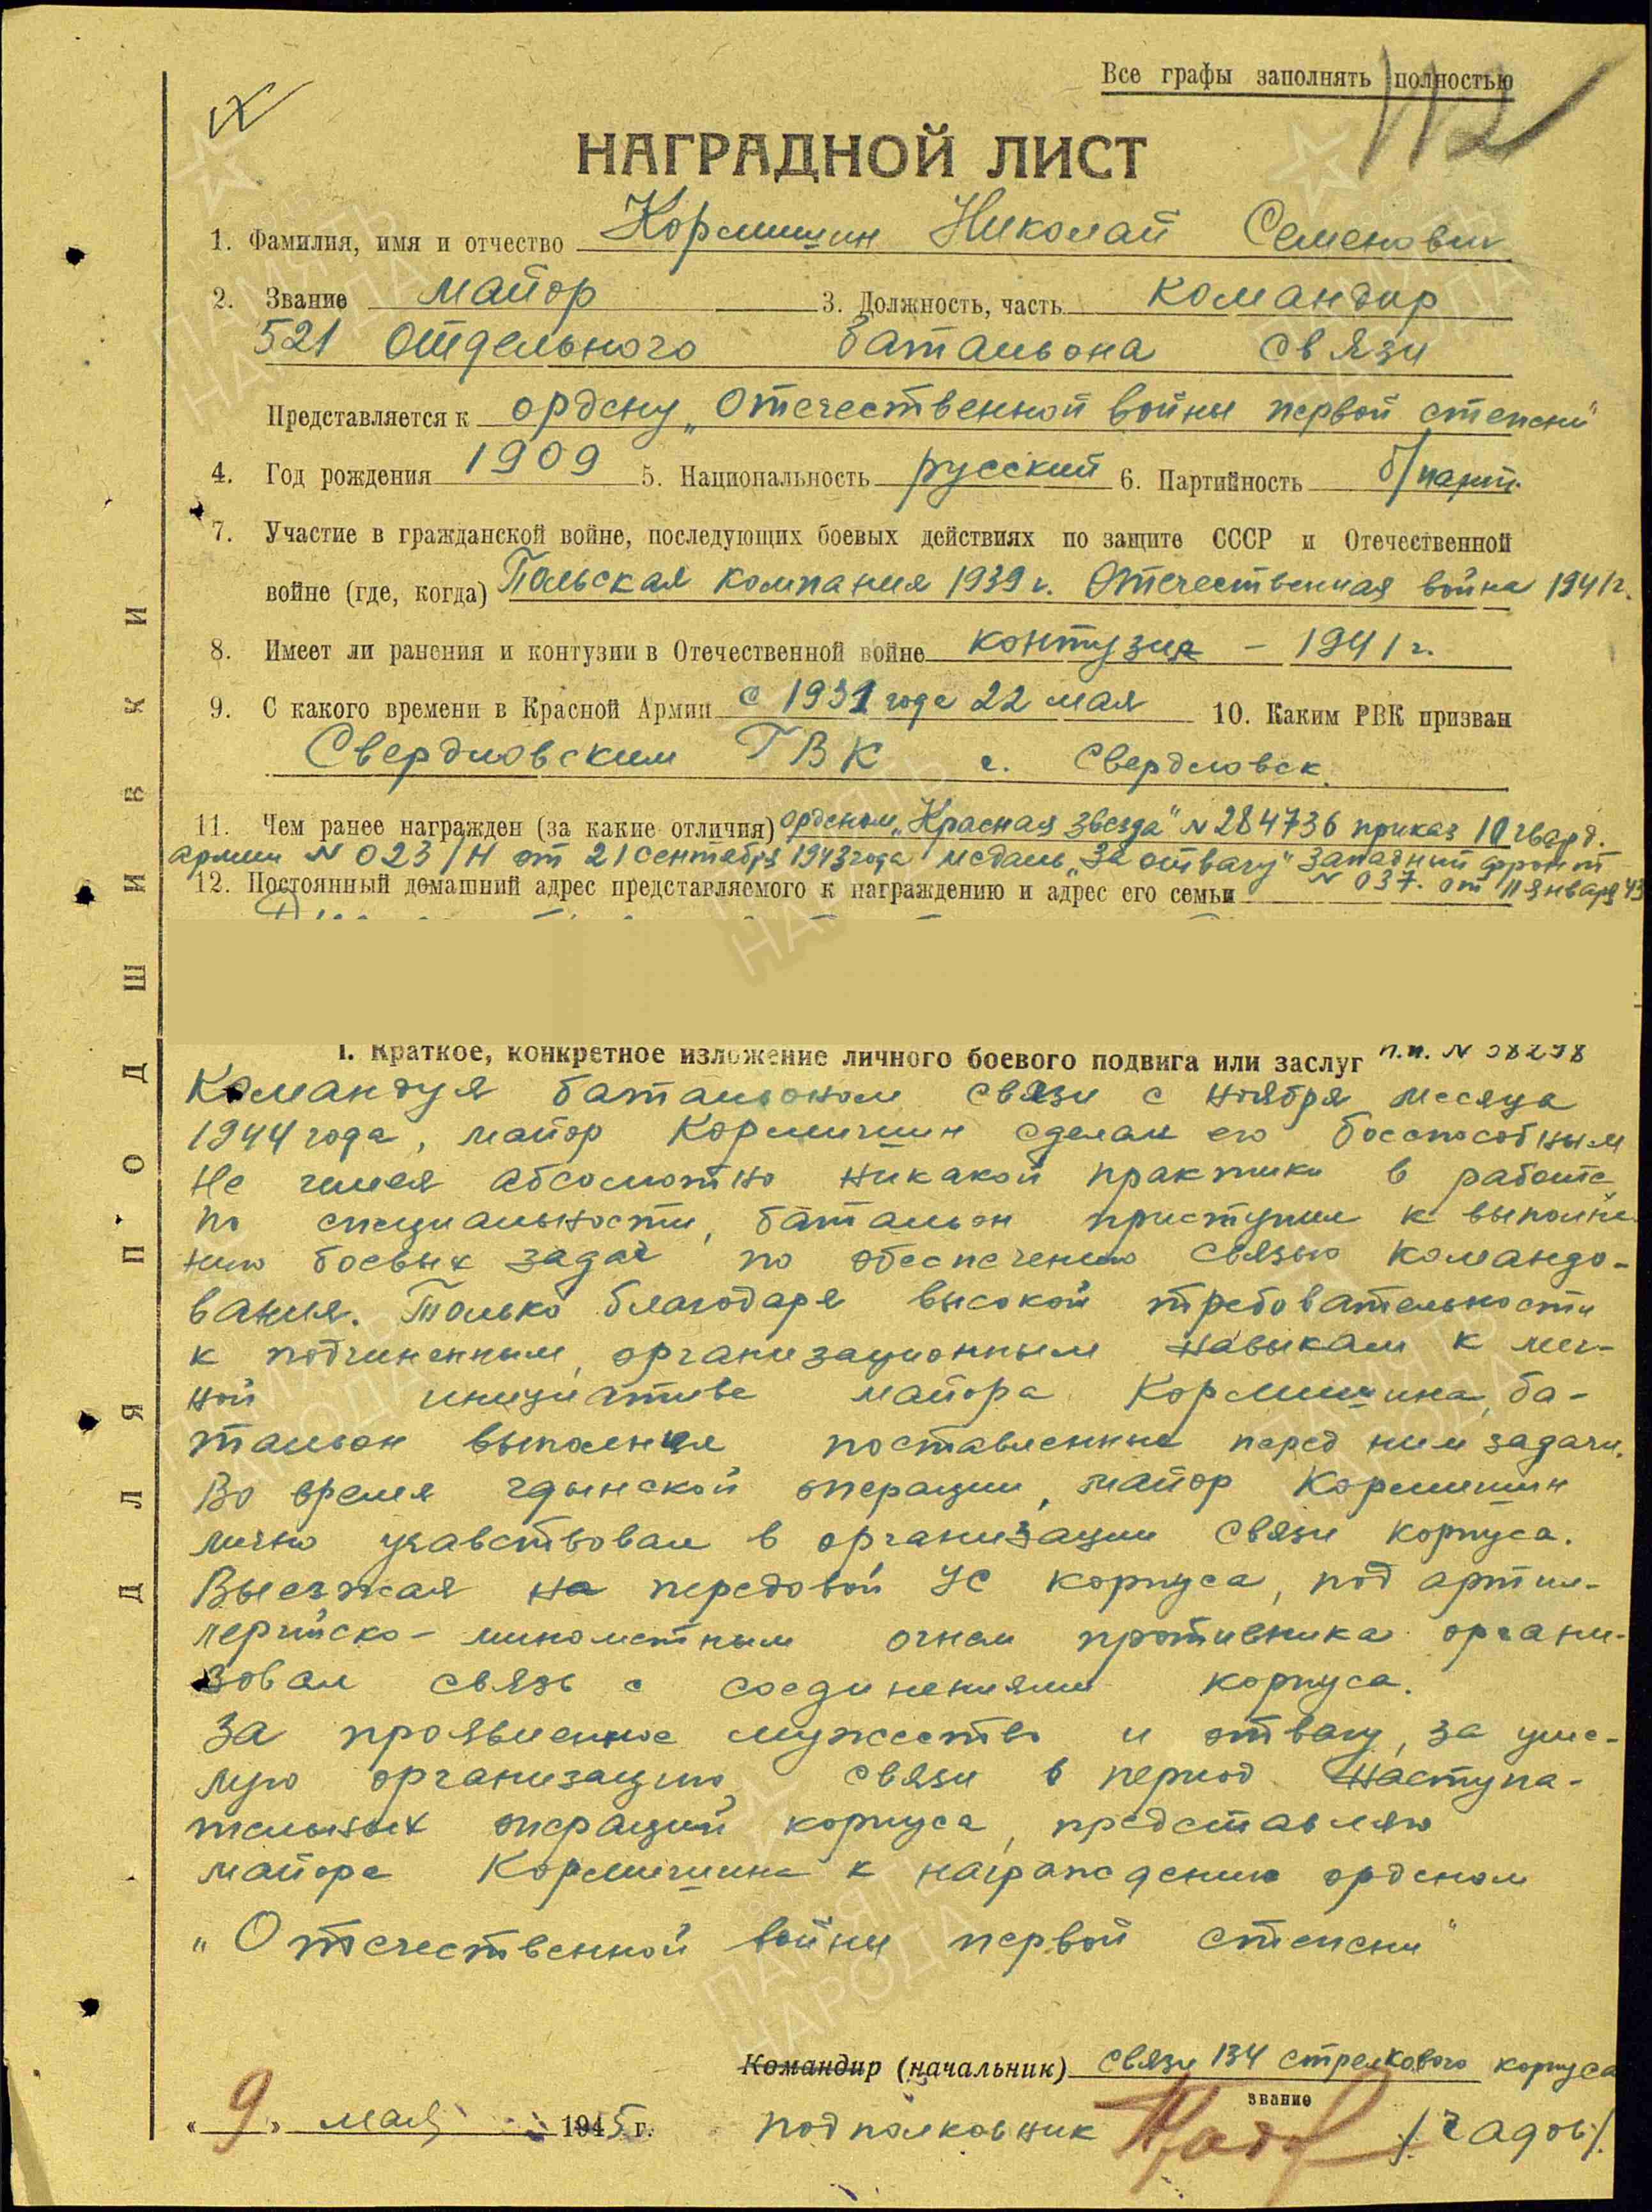 Все графы заполнять полностью
112
НАГРАДНОЙ ЛИСТ
1. Фамилия, имя и отчество Кормишин Николай Семенович
2. Звание майор 3. Должность, часть командир
521 отдельного батальона связи
Представляется к ордену „Отечественной войны первой степени"
4. Год рождения 1909 5. Национальность русский 6. Партийность б/парт.
7. Участие в гражданской войне, последующих боевых действиях по защите СССР и Отечественной
войне (где, когда) Польская компания 1939 г. Отечественная война 1941г.
8. Имеет ли ранения и контузии в Отечественной войне контузия - 1941 г.
9. С какого времени в Красной Армии с 1931 года 22 мая 10. Каким РВК призван
Свердловским ГВК г. Свердловск.
11. Чем ранее награжден (за какие отличия) орденом „Красная звезда" N 284736 приказ 10 гвард.
армии N 023/Н от 21 сентября 1943 года медаль „За отвагу" Западный фронт
N 037. от 11 января 43
12. Постоянный домашний адрес представляемого к награждению и адрес его семьи
I. Краткое, конкретное изложение личного боевого подвига или заслуг п.п. N
Командуя батальоном связи с ноября месяца
1944 года, майор Кормишин сделал его боеспособным
Не имея абсолютно никакой практики в работе
по специальности, батальон приступил к выполне
нию боевых задач по обеспечению связью командо-
вания. Только благодаря высокой требовательности
к подчиненным, организационным навыкам к лич-
ной инициативе майора Кормишина, ба-
тальон выполнил поставленные перед ним задачи.
Во время гдынской операции, майор Кормишин
лично учавствовал в организации связи корпуса.
Выезжая на передовой УС корпуса, под артил-
лерийско-минометным огнем противника органи-
зовал связь с соединениями корпуса.
За проявленное мужество и отвагу, за уме-
лую организацию связи в период наступа-
тельных операций корпуса, представляю
майора Кормишина к награждению орденом
„Отечественной войны первой степени"
Командир (начальник) связи 134 стрелкового корпуса
звание
„9" мая 1945 г. подполковник /Чадов/.
ДЛЯ ПОДШИВКИ
ПАМЯТЬ НАРОДА